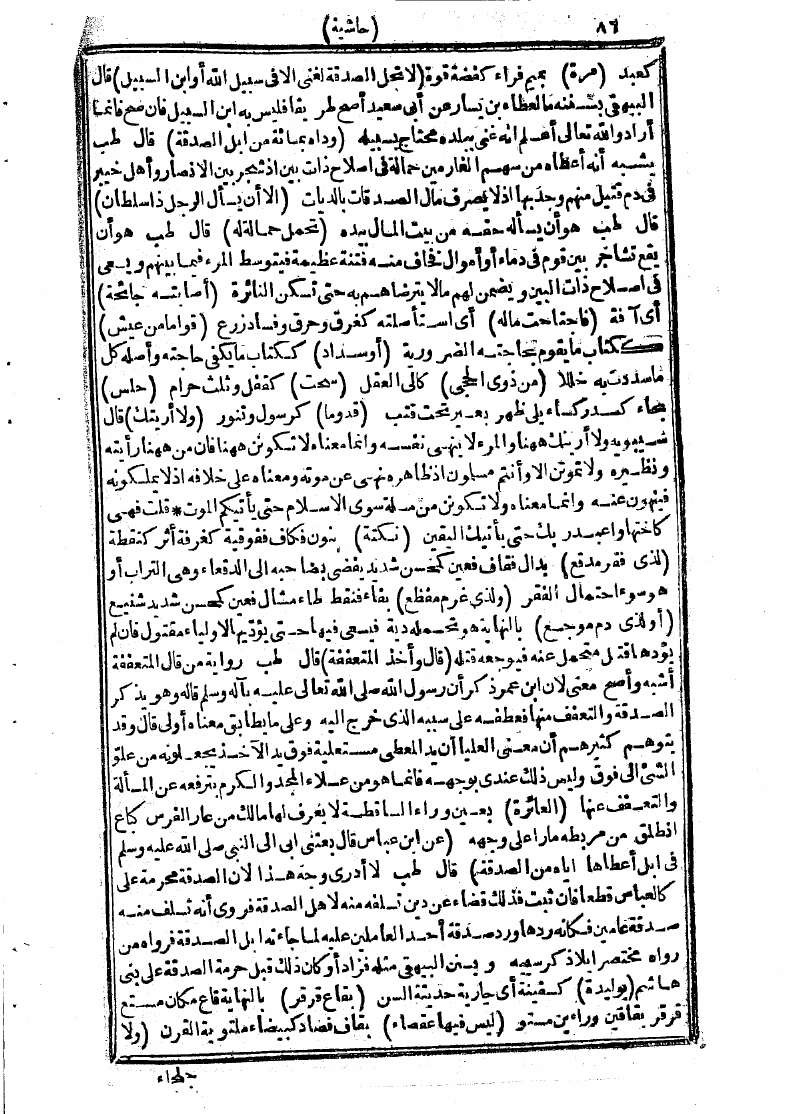 ٨٦ (حاشية)
كعبد (مرة) بميم فراء كفضة قوة (لا تحل الصدقة لغنى الا فى سبيل الله أو ابن السبيل) قال
البيهقى بسننه مالعطاء بن يسار عن أبى سعيد أصح طر يقا فليس به ابن السبيل فان صح فانما
أراد والله تعالى أعلم انه غنى ببلده محتاج بسبيله (وداه بمائة من ابل الصدقة) قال طب
يشبه أنه أعطاه من سهم الغارمين حمالة فى اصلاح ذات بين اذ شجر بين الانصار وأهل خيبر
فى دم قتيل منهم وجد بها اذ لا يصرف مال الصدقات بالديات (الا أن يسأل الرجل ذا سلطان)
قال طب هو أن يسأله حقه من بيت المال بيده (تحمل حمالة له) قال طب هو أن
يقع تشاجر بين قوم فى دماء أو أموال تخاف منه فتنة عظيمة فيتوسط المرء فيما بينهم ويسعى
فى اصلاح ذات البين ويضمن لهم مالا يترضاهم به حتى تسكن النائرة (أصابته جائحة)
أى آفة (فاجتاحت ماله) أى استأصلته كغرق وحرق وفساد زرع (قواما من عيش)
ككتاب ما يقوم بحاجته الضرورية (أو سداد) ككتاب ما يكفى حاجته وأصله كل
ما سددت به خللا (من ذوى الحجى) كالى العقل (سحت) كقفل وثلث حرام (حلس)
بحاء كسدر كساء يلى ظهر بعير تحت قتب (قدوما) كرسول وتنور (ولا أرينك) قال
سيبويه ولا أرينك ههنا والمرء لا ينهى نفسه وانما معناه لا تكونن ههنا فان من ههنا رأيته
ونظيره ولا تموتن الا وأنتم مسلمون اذ ظاهره نهى عن موته ومعناه على خلافه اذ لا يملكونه
فينهون عنه وانما معناه ولا تكونن من ملة سوى الاسلام حتى يأتيكم الموت * قلت فهى
كاختها واعبد ربك حتى يأتيك اليقين (نكتة) بنون فكاف ففوقية كغرفة أثر كنقطة
(لذى فقر مدقع) بدال فقاف فعين كمحسن شديد يفضى بصاحبه الى الدقعاء وهى التراب أو
هو سوء احتمال الفقر (ولذى غرم مفظع) بفاء فنقط طاء مشال فعين كمحسن شديد شنيع
(أو لذى دم موجع) بالنهاية هو تحمله دية فيسعى فيها حتى يؤديها لاولياء مقتول فان لم
يؤدها قتل متحمل عنه فيوجعه قتله (قال وأخذ المتعففة) قال طب رواية من قال المتعففة
أشبه وأصح معنى لان ابن عمر ذكر أن رسول الله صلى الله تعالى عليه بآله وسلم قاله وهو يذكر
الصدقة والتعفف منها فعطفه على سببه الذى خرج اليه وعلى ما يطابق معناه أولى قال وقد
يتوهم كثيرهم أن معنى العليا أن يد المعطى مستعلية فوق يد الآخذ بجعلونه من علو
الشئ الى فوق وليس ذلك عندى بوجهه فانما هو من علاء المجد والكرم بترفعه عن المسألة
والتعفف عنها (العائرة) بعين وراء الساقطة لا يعرف لها مالك من عار الفرس كباع
انطلق من مربطه مارا على وجهه (عن ابن عباس قال بعثنى ابى الى النبى صلى الله عليه وسلم
فى ابل أعطاها اياه من الصدقة) قال طب لا أدرى وجه هذا لان الصدقة محرمة على
كالعباس قطعا فان ثبت فذلك قضاء عن دين تسلفه منه لاهل الصدقة فروى أنه تسلف منه
صدقة عامين فكانه ردها ورد صدقة أحد العاملين عليه لما جاءته ابل الصدقة فرواه من
رواه مختصرا بلا ذكر سببه و بسنن البيهقى مثله فزاد أو كان ذلك قبل حرمة الصدقة على بنى
هاشم (بوليدة) كسفينة أى جارية حديثة السن (بقاع قرقر) بالنهاية قاع مكان متسع
قرقر بقافين وراءين مستو (ليس فيها عقصاء) بقاف فصاد كبيضاء ملتوية القرن (ولا
جلحاء